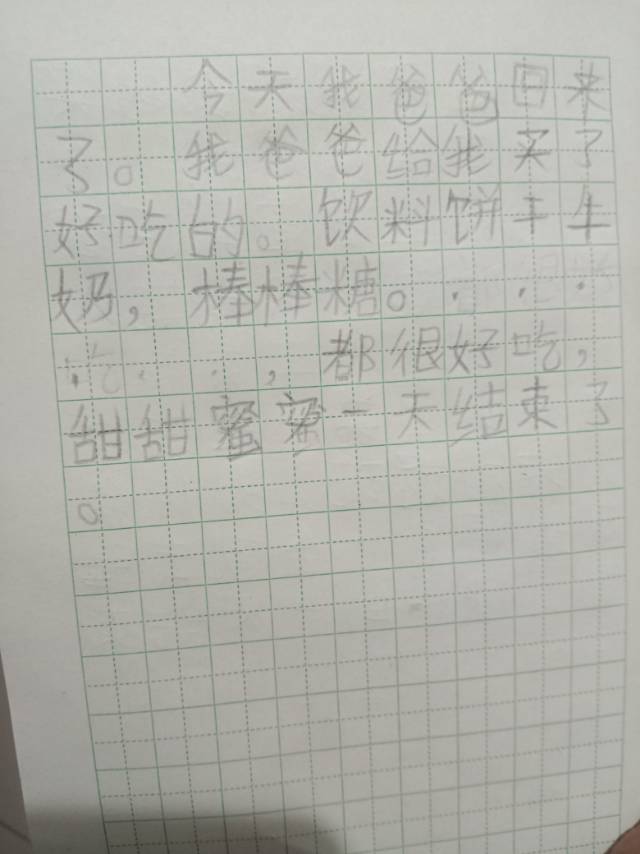 今天我爸爸回来
了。我爸爸给我买了
好吃的。饮料饼干牛
奶，棒棒糖。...
...，都很好吃，
甜甜蜜蜜一天结束了
。